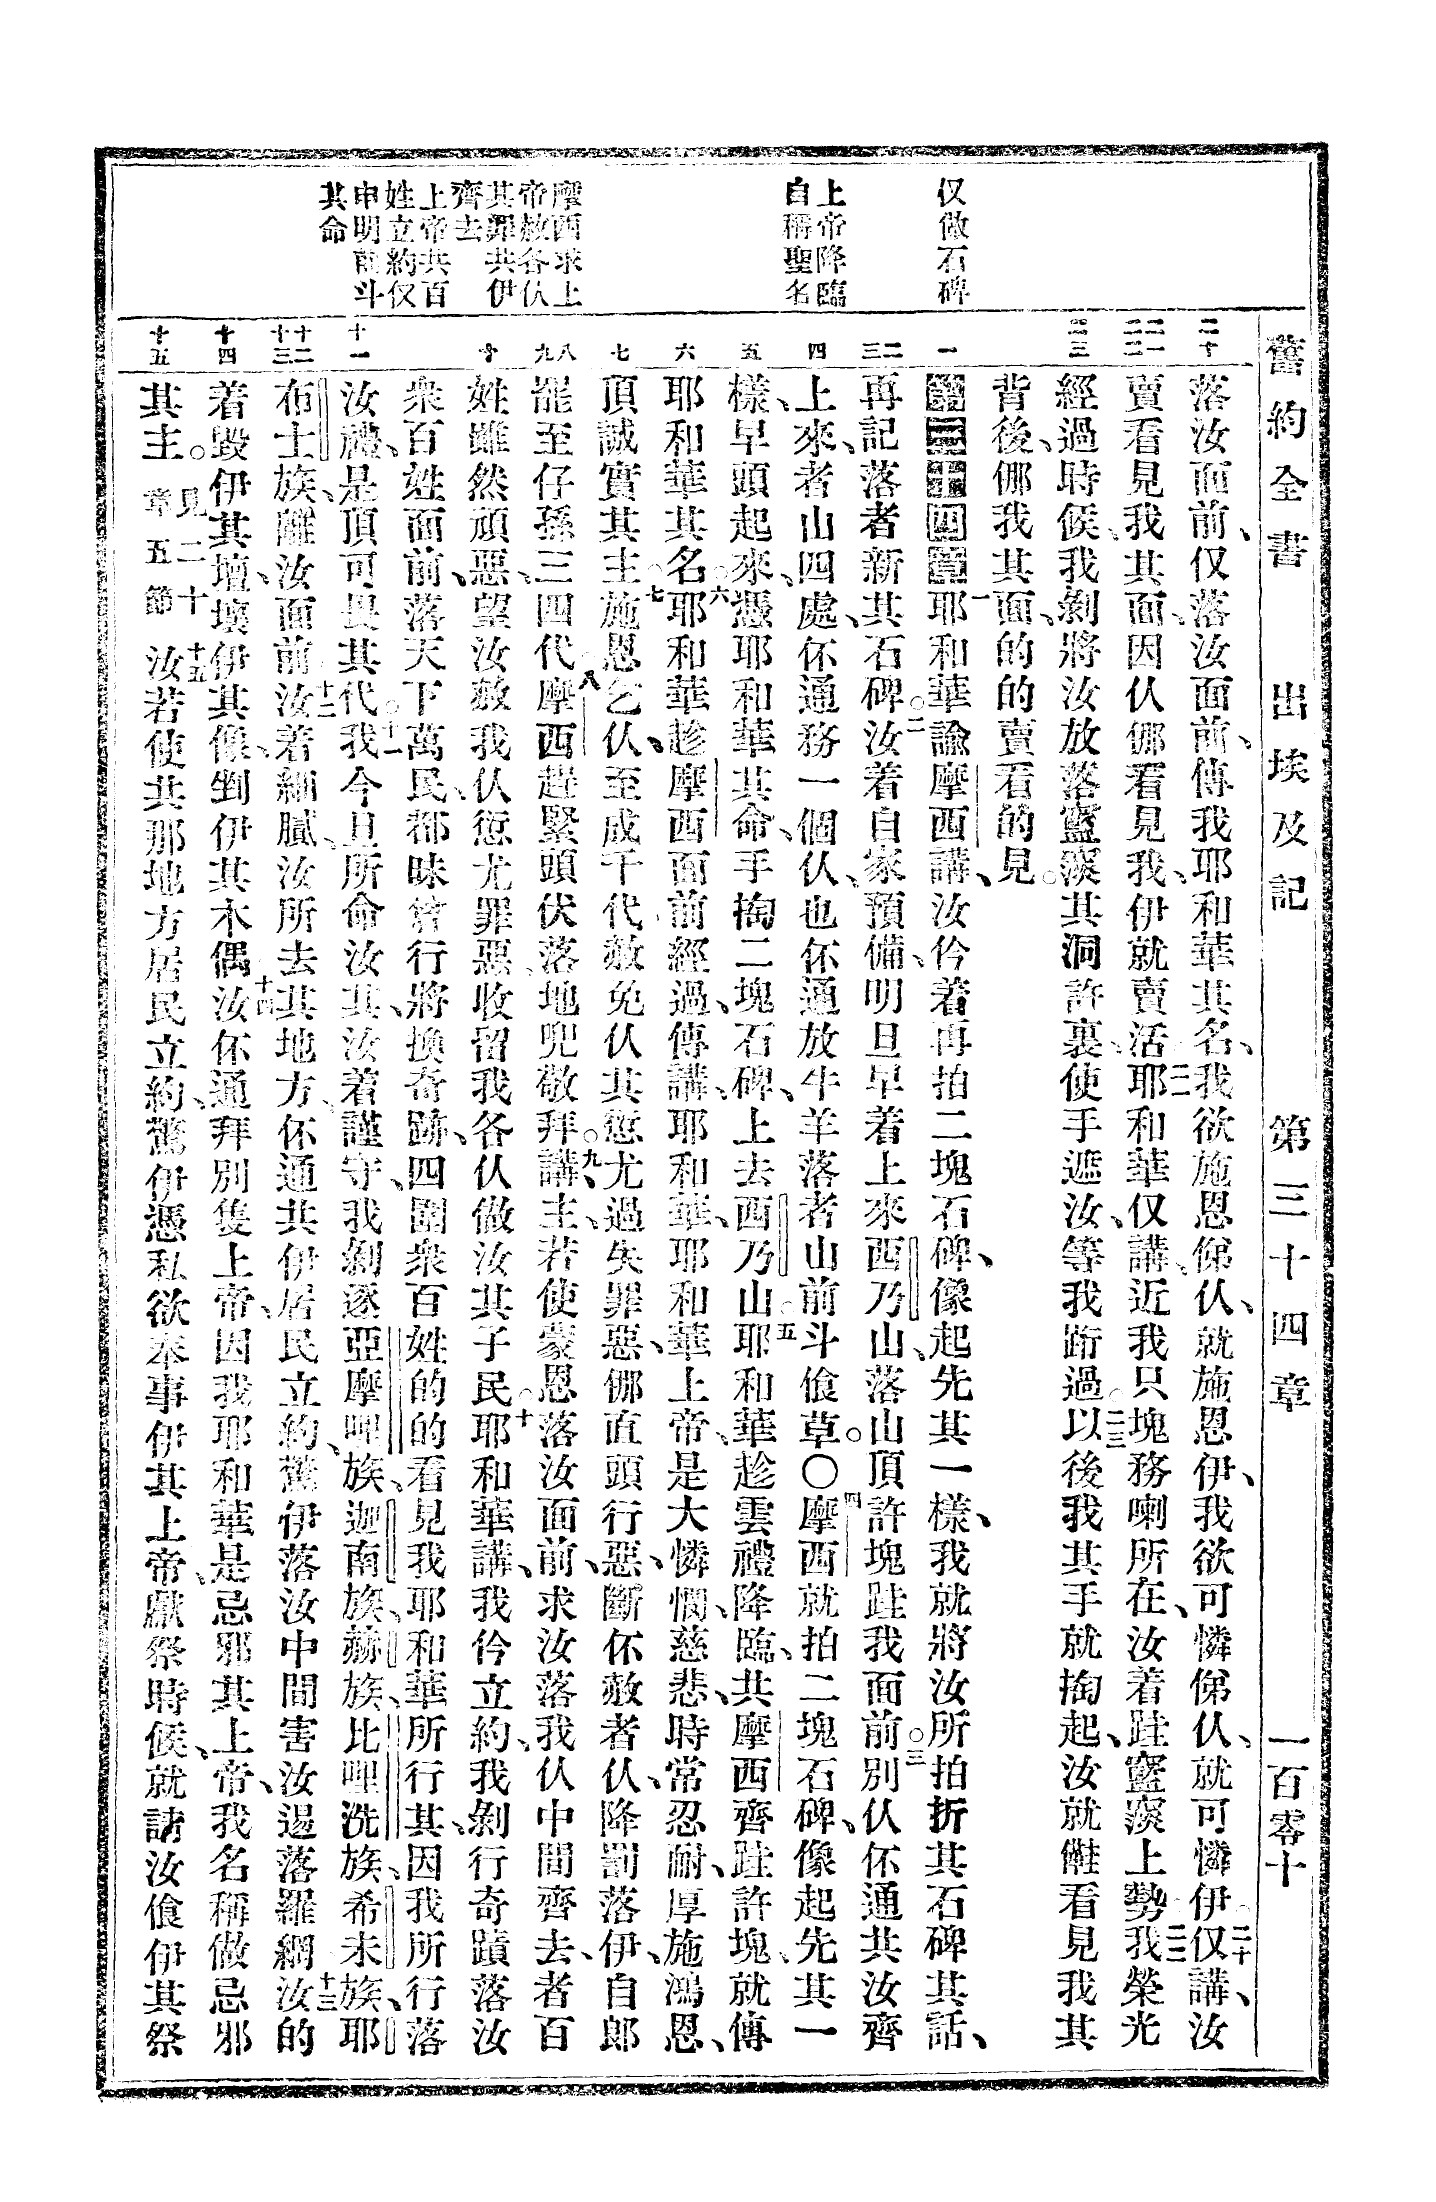 舊約全書 出埃及記 第三十四章 一百零十
仅做石碑
上帝降臨
自稱聖名
摩西求上
帝赦各仈
其罪共伊
齊去
上帝共百
姓立約仅
申明前斗
其命
二十
二一 二二
二三
一
二 三
四
五
六
七
八 九
十
十一
十二 十三
十四
十五
落汝面前、仅落汝面前、傳我耶和華其名、我欲施恩俤仈、就施恩伊、我欲可憐俤仈、就可憐伊。二十仅講、汝
賣看見我其面、因仈㑚看見我、伊就賣活。二一耶和華仅講、近我只塊務喇所在、汝着跬𥧌㵎上勢。二二我榮光
經過時候、我剝將汝放落𥧌㵎其洞許裏、使手遮汝、等我䟰過。二三以後我其手就掏起、汝就㒕看見我其
背後、㑚我其面、的的賣看的見。
第三十四章 一耶和華諭摩西講、汝仱着再拍二塊石碑、像起先其一樣、我就將汝所拍折其石碑其話、
再記落者新其石碑。二汝着自家預備、明旦早着上來西乃山、落山頂許塊跬我面前。三別仈伓通共汝齊
上來、者山四處、伓通務一個仈、也伓通放牛羊落者山前斗飡草。〇四摩西就拍二塊石碑、像起先其一
樣、早頭起來、憑耶和華其命、手掏二塊石碑、上去西乃山。五耶和華趁雲禮降臨、共摩西齊跬許塊、就傳
耶和華其名。六耶和華趁摩西面前經過、傳講、耶和華、耶和華上帝、是大憐憫、慈悲、時常忍耐、厚施鴻恩、
頂誠實其主。七施恩乞仈、至成千代、赦免仈其愆尤過失罪惡、㑚直頭行惡、斷伓赦者仈、降罰落伊、自郎
罷至仔孫三四代。八摩西趕緊頭伏落地兜敬拜。九講、主、若使蒙恩落汝面前、求汝落我仈中間齊去、者百
姓雖然頑惡、望汝赦我仈愆尤罪惡、收留我各仈做汝其子民。十耶和華講、我仱立約、我剝行奇蹟落汝
衆百姓面前、落天下萬民、都昧曾行將換奇跡、四圍衆百姓的的看見我耶和華所行其、因我所行落
汝禮、是頂可畏其代。十一我今旦所命汝其、汝着謹守、我剝逐亞摩哩族、迦南族、赫族、比哩洗族、希未族、耶
布士族、離汝面前。十二汝着細膩、汝所去其地方、伓通共伊居民立約、驚伊落汝中間害汝𨑨落羅網。十三汝的
着毁伊其壇、壞伊其像、剉伊其木偶。十四汝伓通拜別隻上帝、因我耶和華是忌邪其上帝、我名稱做忌邪
其主。見二十章五節 十五汝若使共那地方居民立約、驚伊憑私欲奉事伊其上帝、獻祭時候、就請汝飡伊其祭